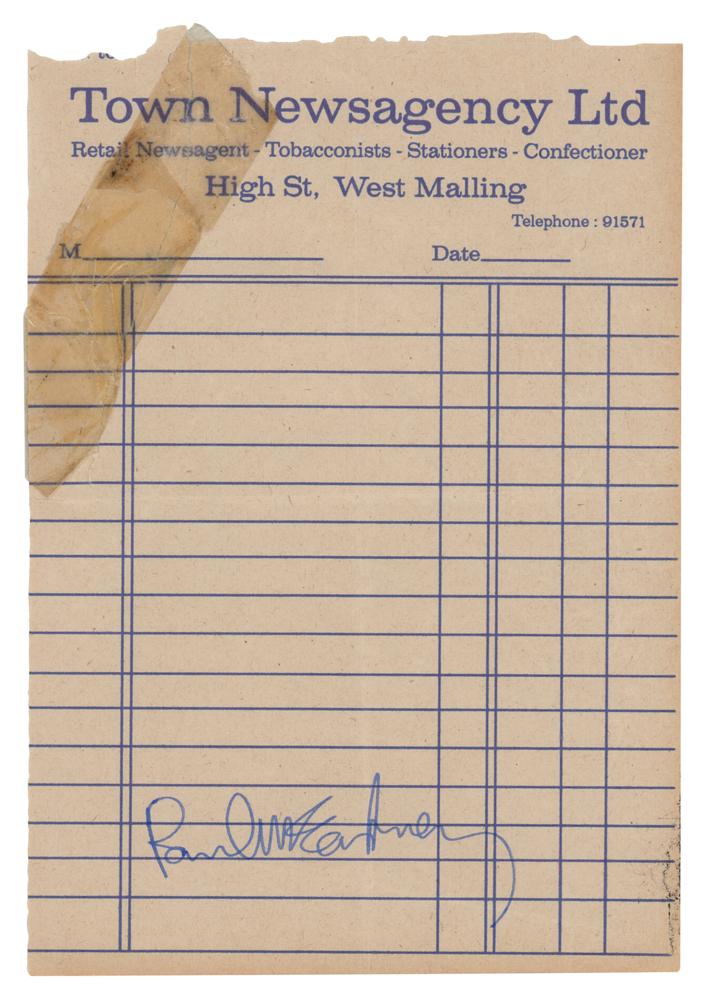 Town Newsagency Ltd
Retail Newsagent - Tobacconists - Stationers - Confectioner
High St, West Malling
Telephone : 91571
M
Date
Paul McCartney